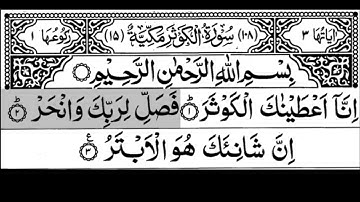 اٰيَاتُهَا ٣ (١٠٨) سُوْرَةُ الْكَوْثَرِ مَكِّيَّةٌ (١٥) رُكُوْعُهَا ١
بِسْمِ اللّٰهِ الرَّحْمٰنِ الرَّحِيْمِ
اِنَّاۤ اَعْطَيْنٰكَ الْكَوْثَرَ ؕ ۝١ فَصَلِّ لِرَبِّكَ وَانْحَرْ ؕ ۝٢
اِنَّ شَانِئَكَ هُوَ الْاَبْتَرُ ۝٣ ع